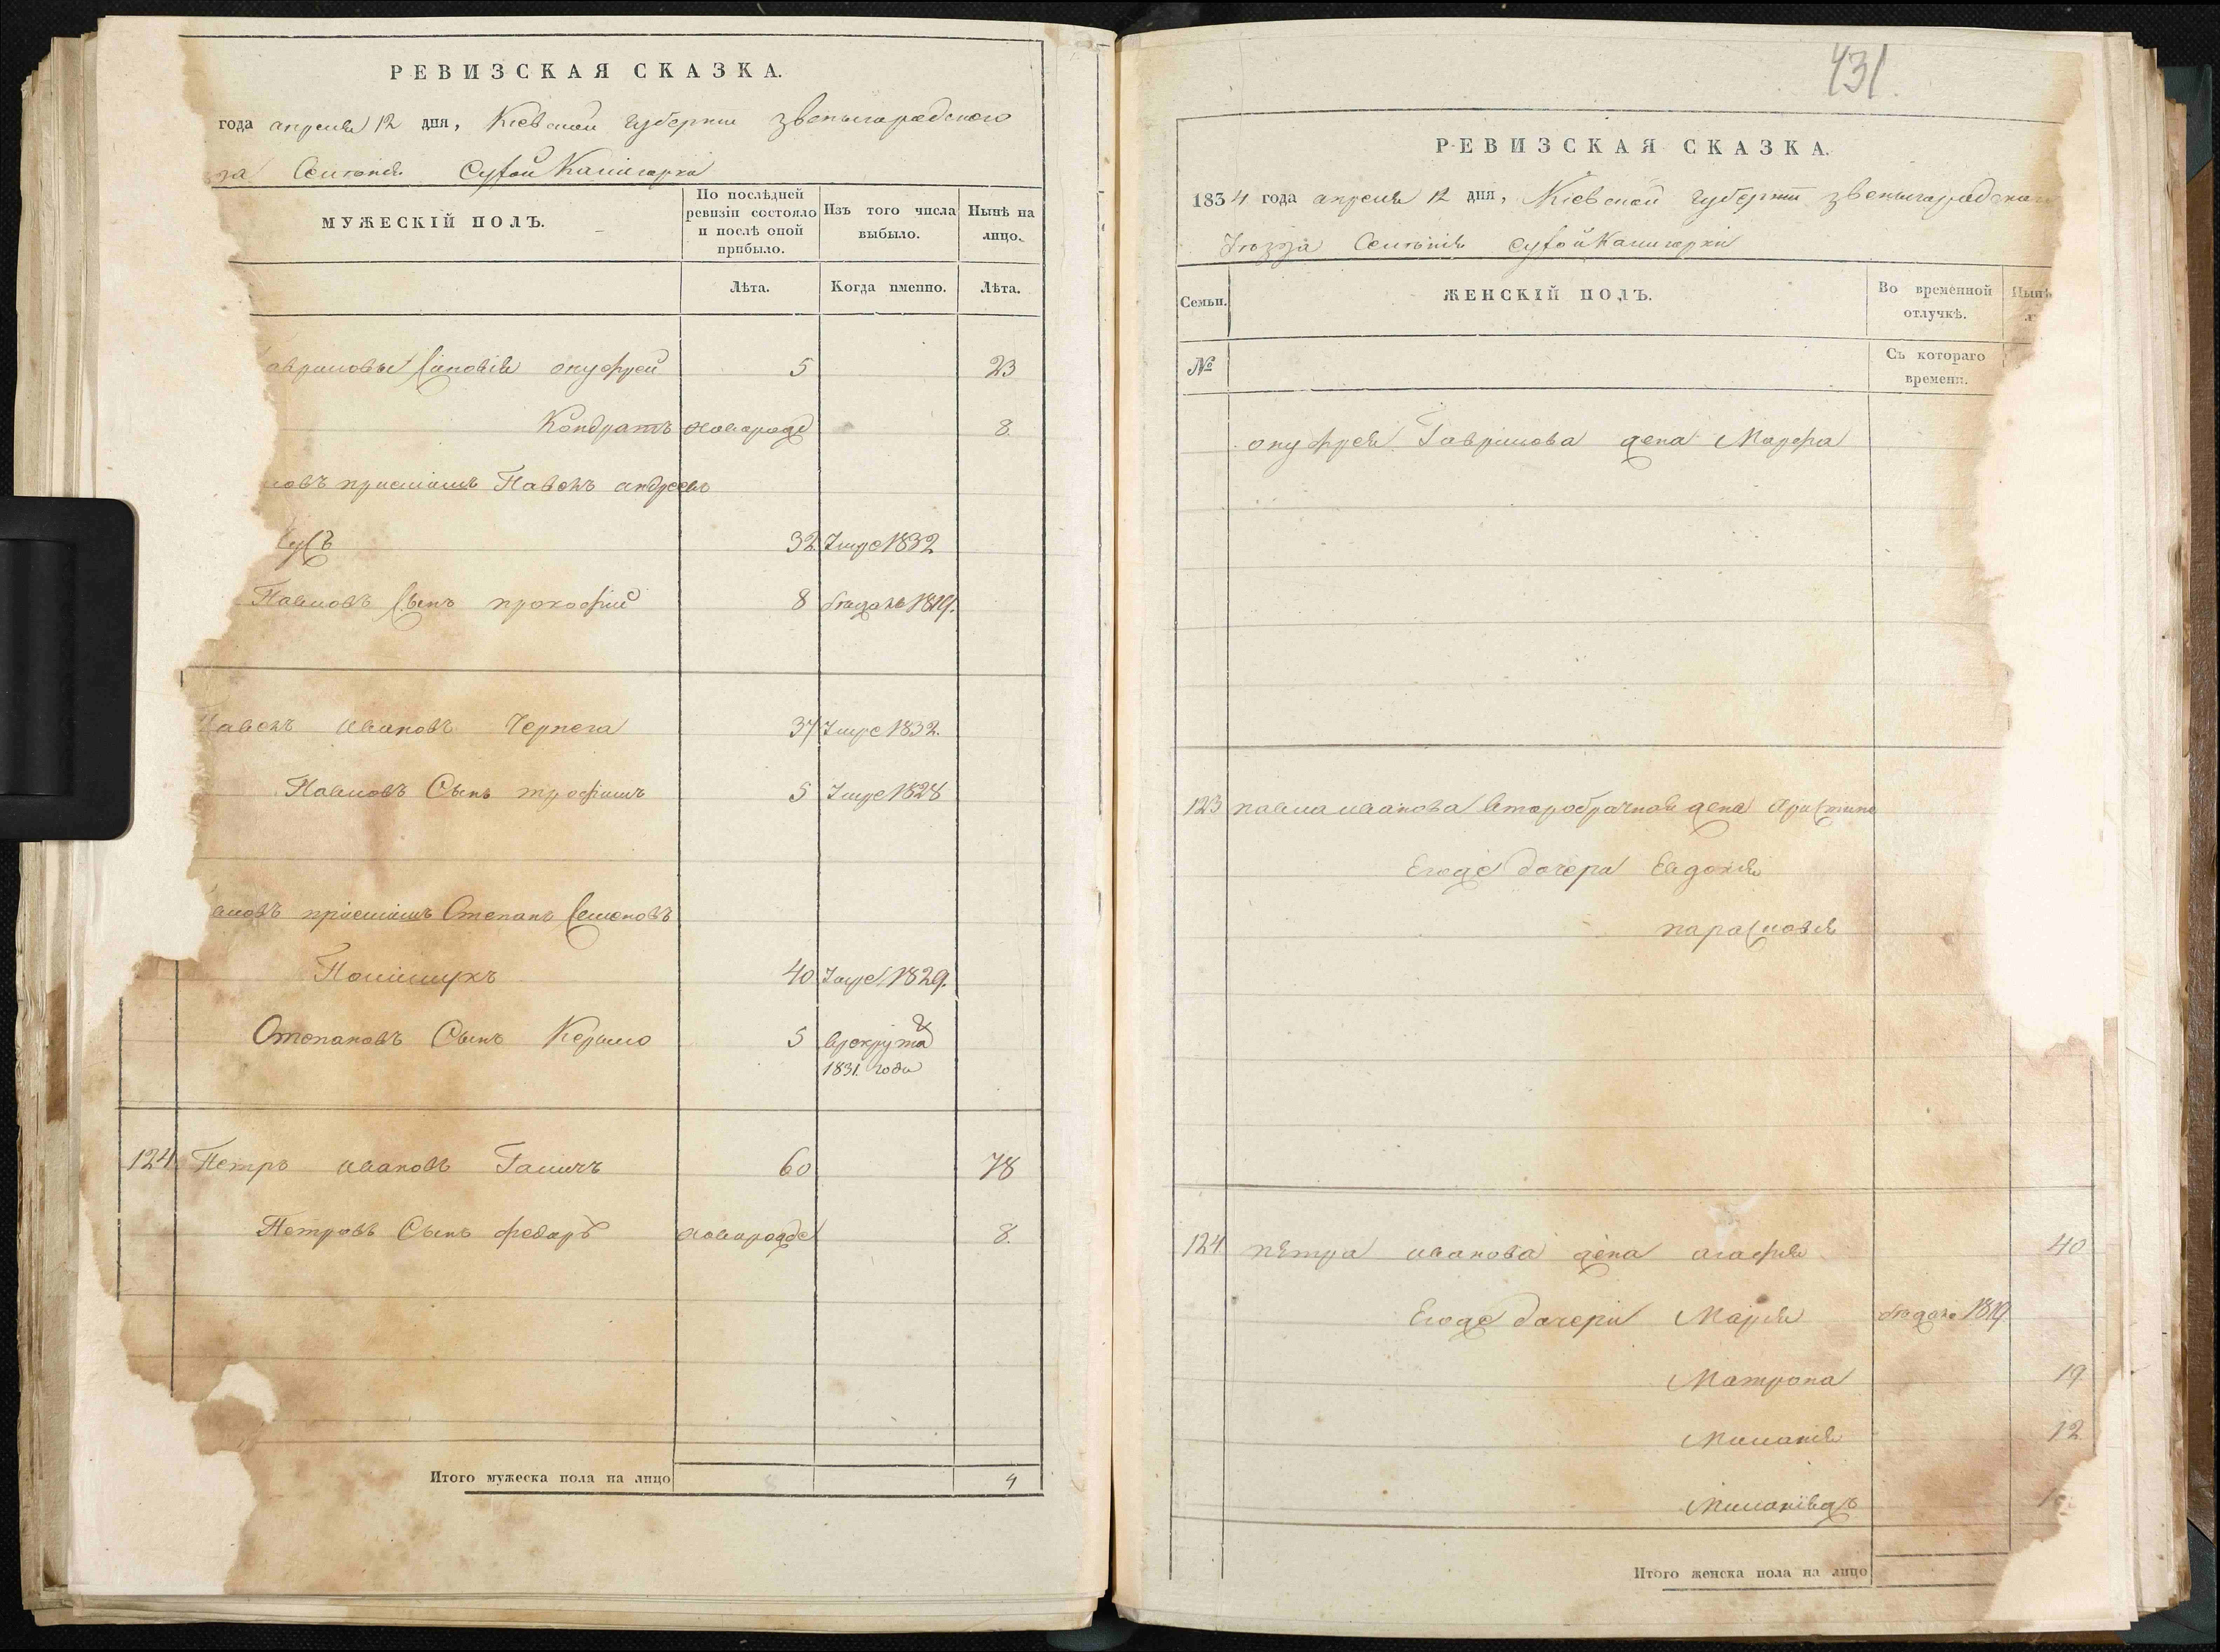 РЕВИЗСКАЯ СКАЗКА.
года апреля 12 дня, Кіевской губерніи звенигородского
Селенія Сухой Калигорки
МУЖЕСКІЙ ПОЛЪ.
По послѣдней ревизіи состояло и послѣ оной прибыло.
Изъ того числа выбыло.
Нынѣ на лицо.
Лѣта.
Когда именно.
Лѣта.
авриловы Сіновія онуфрей 5 23
Кондратъ новорожд 8.
ловъ приемишъ Павелъ андреевъ
32 Умре 1832
Павловъ Сынъ прокофій 8 1819.
авелъ ивановъ Чернега 37 Умре 1832.
Павловъ Сынъ трофимъ 5 Умре 1828
приемишъ Степанъ Семеновъ
Полищукъ 40 Умре 1829.
Степановъ Сынъ Кирило 5 в рекрута
1831 года
124 Петръ ивановъ Галичъ 60 78
Петровъ Сынъ федоръ новорожде 8.
Итого мужеска пола на лицо 4
431.
РЕВИЗСКАЯ СКАЗКА.
1834 года апреля 12 дня, Кіевской губерніи звенигородского
уезда Селенія Сухой Калигорки
Семьи.
ЖЕНСКІЙ ПОЛЪ.
Во временной отлучкѣ.
Нынѣ
№
Съ котораго времени.
онуфрея Гаврилова жена Марфа
123 павла иванова второбрачная жена
Егоже дочери Евдокия
парасковия
124 петра иванова жена агафия 40
Егоже дочери Мария 1819
Матрона 19
Милания 12
Итого женска пола на лицо